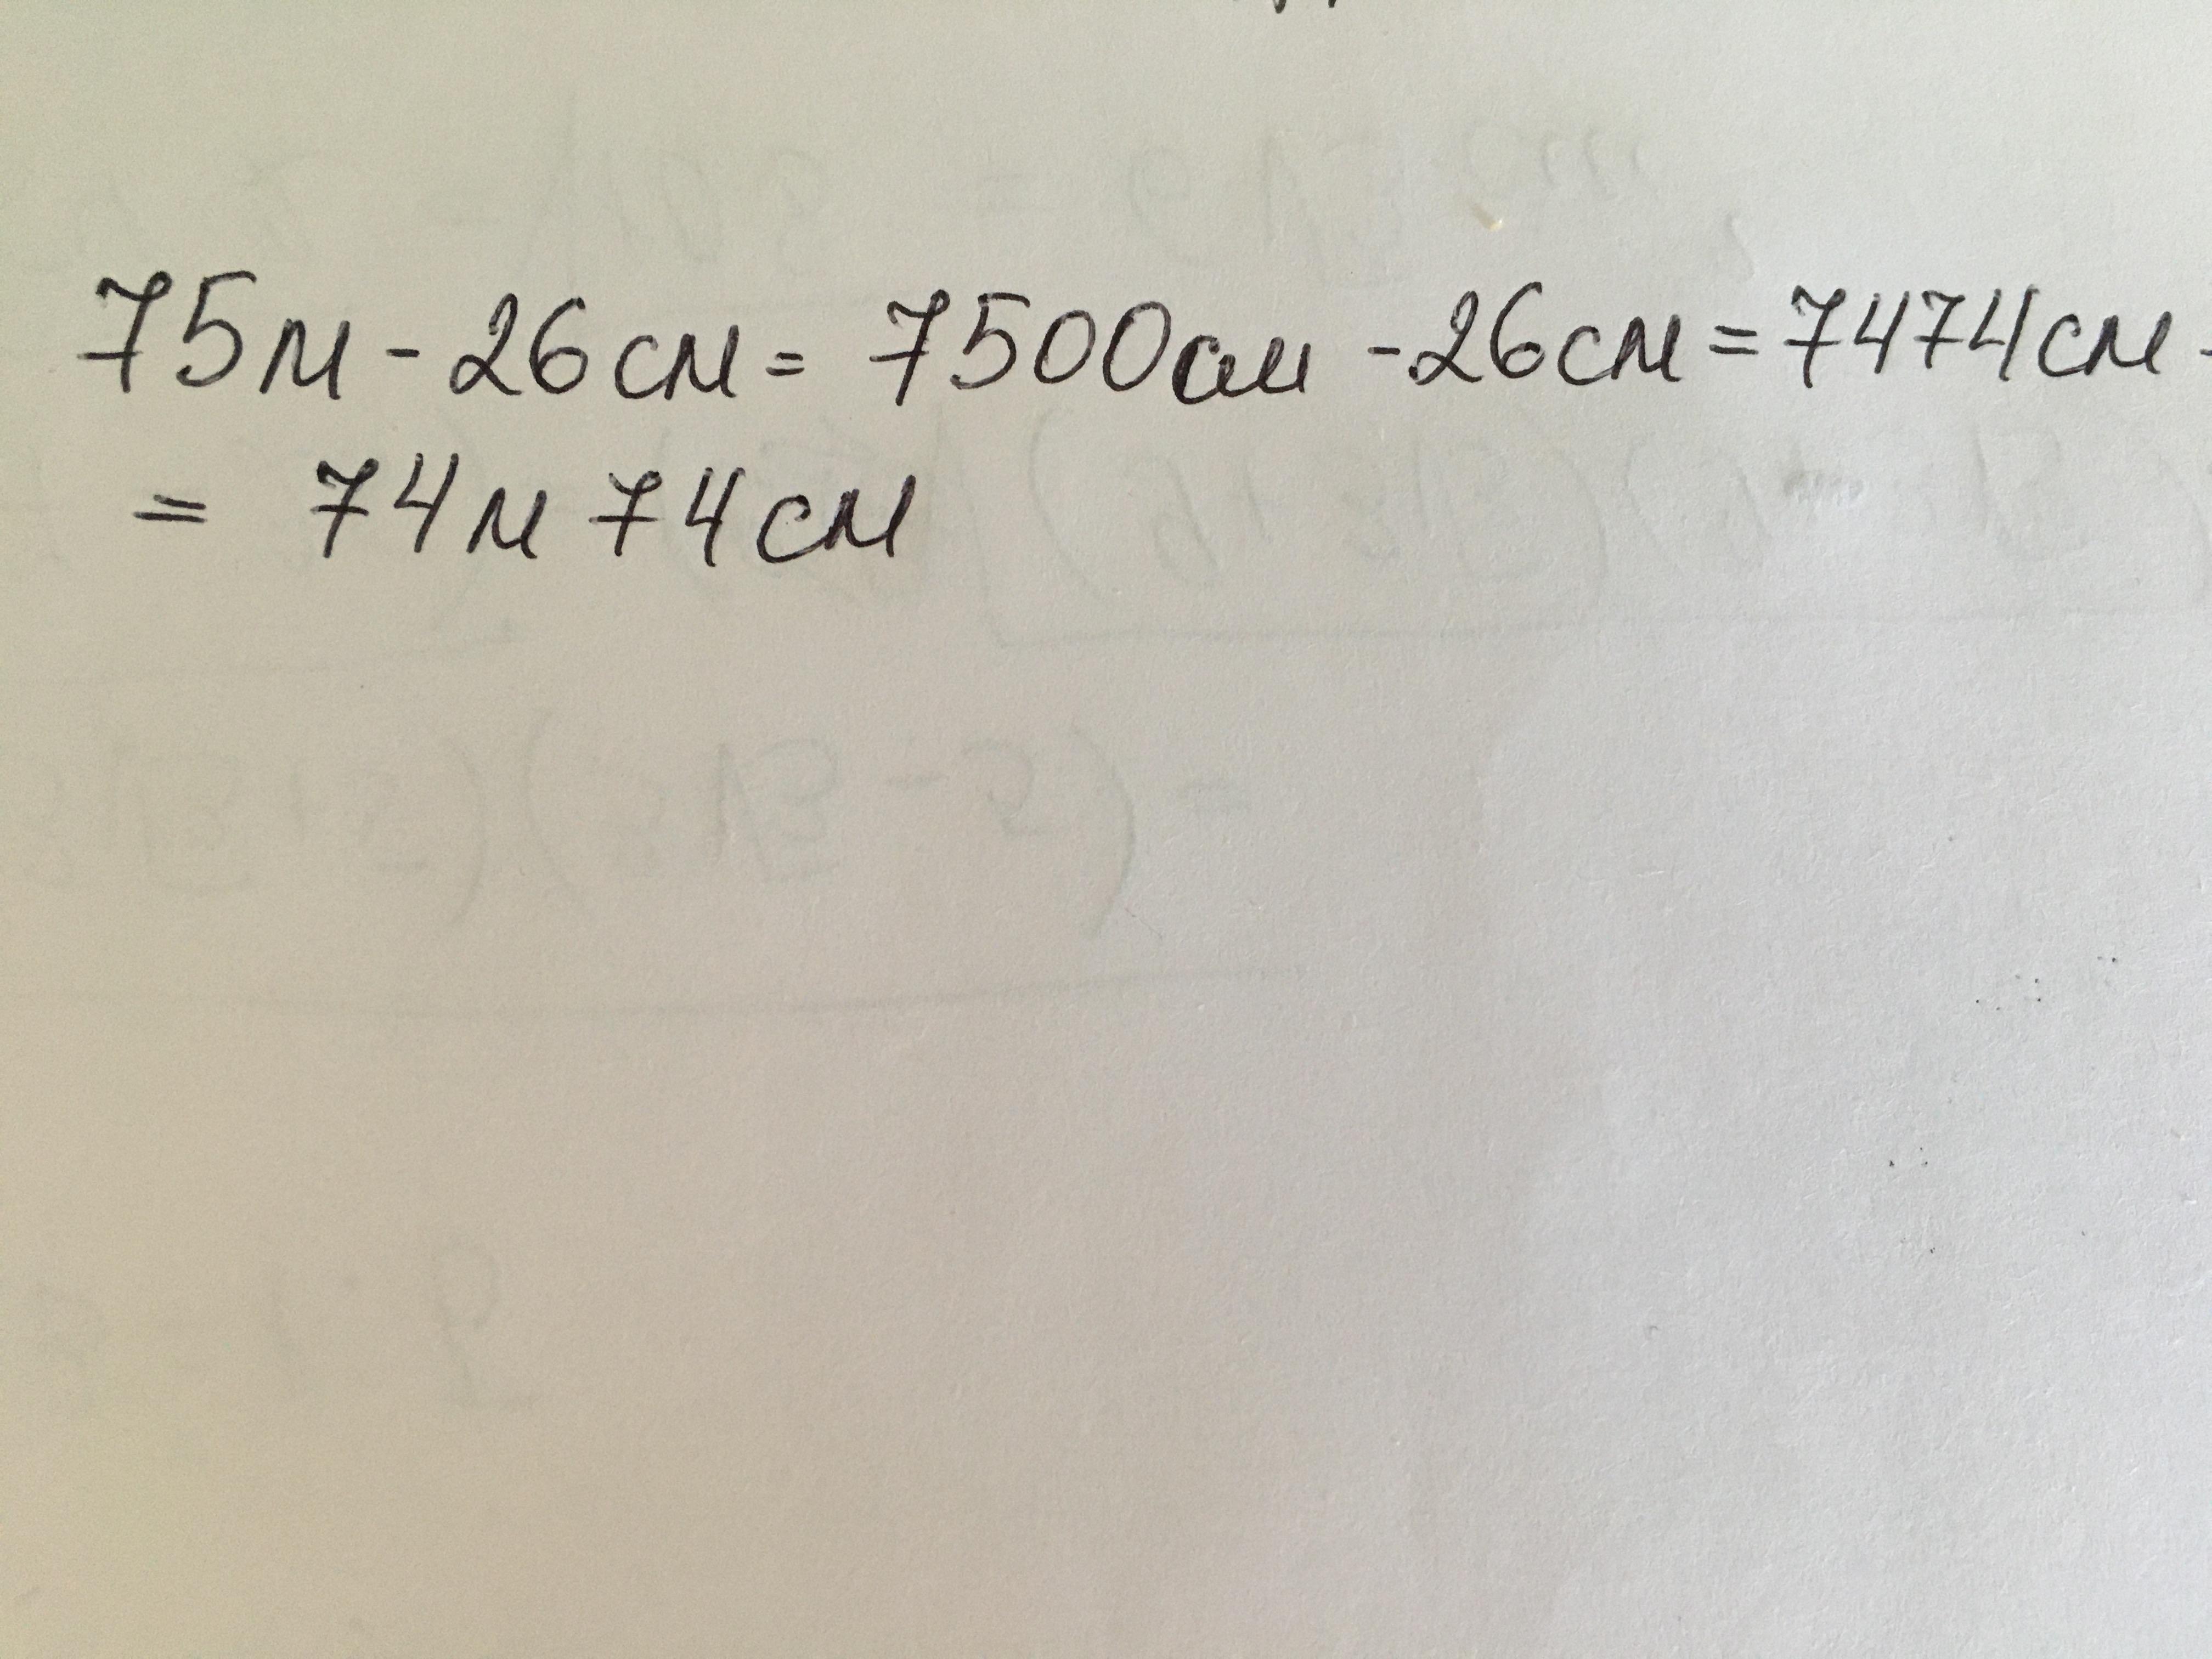 75м - 26см = 7500см - 26см = 7474см =
= 74м 74см